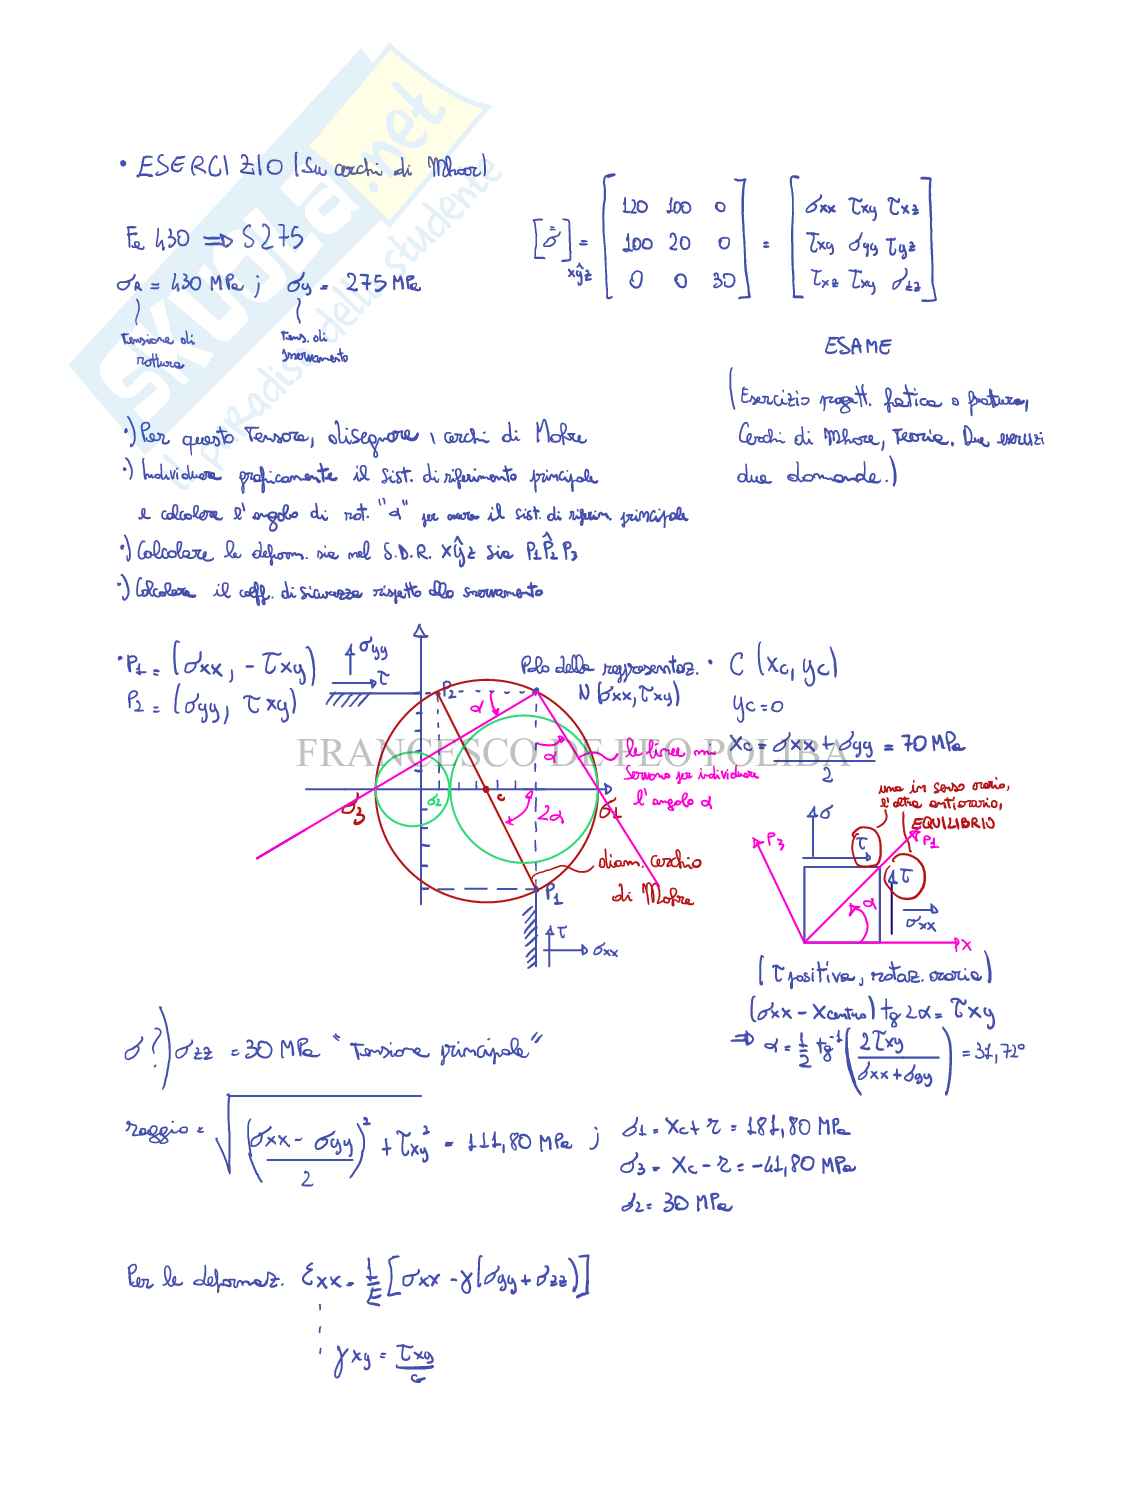 • ESERCIZIO (Su cerchi di Mhoor)
Fe 430 ⇒ S275
σR = 430 MPa ; σy = 275 MPa
Tensione di rottura
Tens. di snervamento
[σ̿]xŷz = [120 100 0; 100 20 0; 0 0 30] = [σxx τxy τxz; τxy σyy τyz; τxz τxy σzz]
ESAME
(Esercizio progett. fatica o frattura,
Cerchi di Mhore, Teoria. Due esercizi
due domande.)
•) Per questo Tensore, disegnare i cerchi di Mohre
•) Individuare graficamente il sist. di riferimento principale
e calcolare l'angolo di rot. "α" per avere il sist. di riferim. principale
•) Calcolare le deform. sia nel S.D.R. xŷz sia P1P̂2P3
•) Calcolare il coeff. di sicurezza rispetto allo snervamento
• P1 = (σxx, -τxy)
P2 = (σyy, τxy)
σyy
τ
P2
Polo della rappresentaz.
N (σxx, τxy)
α
α
2α
σ3
σ2
c
σ1
P1
τ
σxx
le linee mi
servono per individuare
l'angolo α
diam. cerchio
di Mohre
• C (xc, yc)
yc = 0
xc = σxx + σyy / 2 = 70 MPa
una in senso orario,
l'altra antiorario,
EQUILIBRIO
σ
τ
P3
P1
τ
α
σxx
x
(τ positiva, rotaz. oraria)
(σxx - xcentro) tg 2α = τxy
⇒ α = 1/2 tg⁻¹ (2τxy / σxx + σyy) = 31,72°
σ?) σzz = 30 MPa "Tensione principale"
raggio = √(σxx - σyy / 2)² + τxy² = 111,80 MPa ;
σ1 = xc + r = 181,80 MPa
σ3 = xc - r = -41,80 MPa
σ2 = 30 MPa
Per le deformaz. εxx = 1/E [σxx - γ(σyy + σzz)]
γxy = τxy / G
SKUOLA.net
il paradiso dello studente
FRANCESCO DE FEO POLIBA